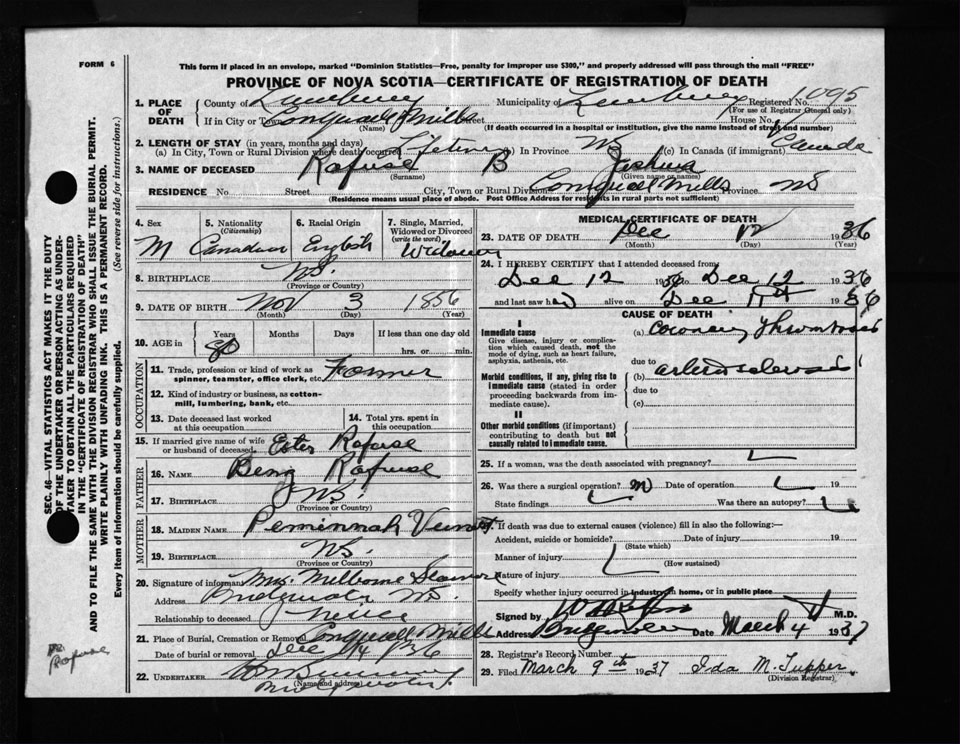 FORM 6
This form if placed in an envelope, marked "Dominion Statistics—Free, penalty for improper use $300," and properly addressed will pass through the mail "FREE"
PROVINCE OF NOVA SCOTIA—CERTIFICATE OF REGISTRATION OF DEATH
1. PLACE OF DEATH County of Lunenburg Municipality of Lunenburg Registered No. 1095
(For use of Registrar General only)
If in City or Town Conquerall Mills House No.
(Name) (If death occurred in a hospital or institution, give the name instead of street and number)
2. LENGTH OF STAY (in years, months and days)
(a) In City, Town or Rural Division where death occurred Lifetime (b) In Province NS (c) In Canada (if immigrant) Canada
3. NAME OF DECEASED Rafuse B Joshua
(Surname) (Given name or names)
RESIDENCE No. Street City, Town or Rural Division Conquerall Mills Province NS
(Residence means usual place of abode. Post Office Address for residents in rural parts not sufficient)
4. Sex M
5. Nationality (Citizenship) Canadian
6. Racial Origin English
7. Single, Married, Widowed or Divorced (write the word) Widower
8. BIRTHPLACE NS.
(Province or Country)
9. DATE OF BIRTH Nov 3 1856
(Month) (Day) (Year)
10. AGE in Years Months Days If less than one day old
80 hrs. or min.
OCCUPATION
11. Trade, profession or kind of work as spinner, teamster, office clerk, etc. Farmer
12. Kind of industry or business, as cotton-mill, lumbering, bank, etc.
13. Date deceased last worked at this occupation
14. Total yrs. spent in this occupation
15. If married give name of wife or husband of deceased. Ester Rafuse
FATHER
16. NAME Benj Rafuse
17. BIRTHPLACE NS.
(Province or Country)
MOTHER
18. MAIDEN NAME Peninnah
19. BIRTHPLACE NS.
(Province or Country)
20. Signature of informant Mrs. Milborne
Address Bridgewater NS.
Relationship to deceased Niece
21. Place of Burial, Cremation or Removal Conquerall Mills
Date of burial or removal Dec 14 1936
22. UNDERTAKER
(Name and address) Bridgewater
MEDICAL CERTIFICATE OF DEATH
23. DATE OF DEATH Dec 12 1936
(Month) (Day) (Year)
24. I HEREBY CERTIFY that I attended deceased from
Dec 12 1936 to Dec 12 1936
and last saw h alive on Dec 11th 1936
CAUSE OF DEATH
I
Immediate cause (a) Coronary Thrombosis
Give disease, injury or complication which caused death, not the mode of dying, such as heart failure, asphyxia, asthenia, etc.
due to
Morbid conditions, if any, giving rise to immediate cause (stated in order proceeding backwards from immediate cause). (b) arteriosclerosis
due to
(c)
II
Other morbid conditions (if important) contributing to death but not causally related to immediate cause.
25. If a woman, was the death associated with pregnancy?
26. Was there a surgical operation? no Date of operation 19
State findings Was there an autopsy?
27. If death was due to external causes (violence) fill in also the following:—
Accident, suicide or homicide? Date of injury 19
(State which)
Manner of injury
(How sustained)
Nature of injury
Specify whether injury occurred in industry, in home, or in public place
Signed by M.D.
Address Bridgewater Date March 4 1937
28. Registrar's Record Number
29. Filed March 9th 1937 Ida M. Tupper
(Division Registrar)
SEC. 46—VITAL STATISTICS ACT MAKES IT THE DUTY
OF THE UNDERTAKER OR PERSON ACTING AS UNDER-
TAKER TO OBTAIN ALL THE PARTICULARS REQUIRED
IN THE "CERTIFICATE OF REGISTRATION OF DEATH"
AND TO FILE THE SAME WITH THE DIVISION REGISTRAR WHO SHALL ISSUE THE BURIAL PERMIT.
WRITE PLAINLY WITH UNFADING INK. THIS IS A PERMANENT RECORD.
Every item of information should be carefully supplied. (See reverse side for instructions.)
Rafuse